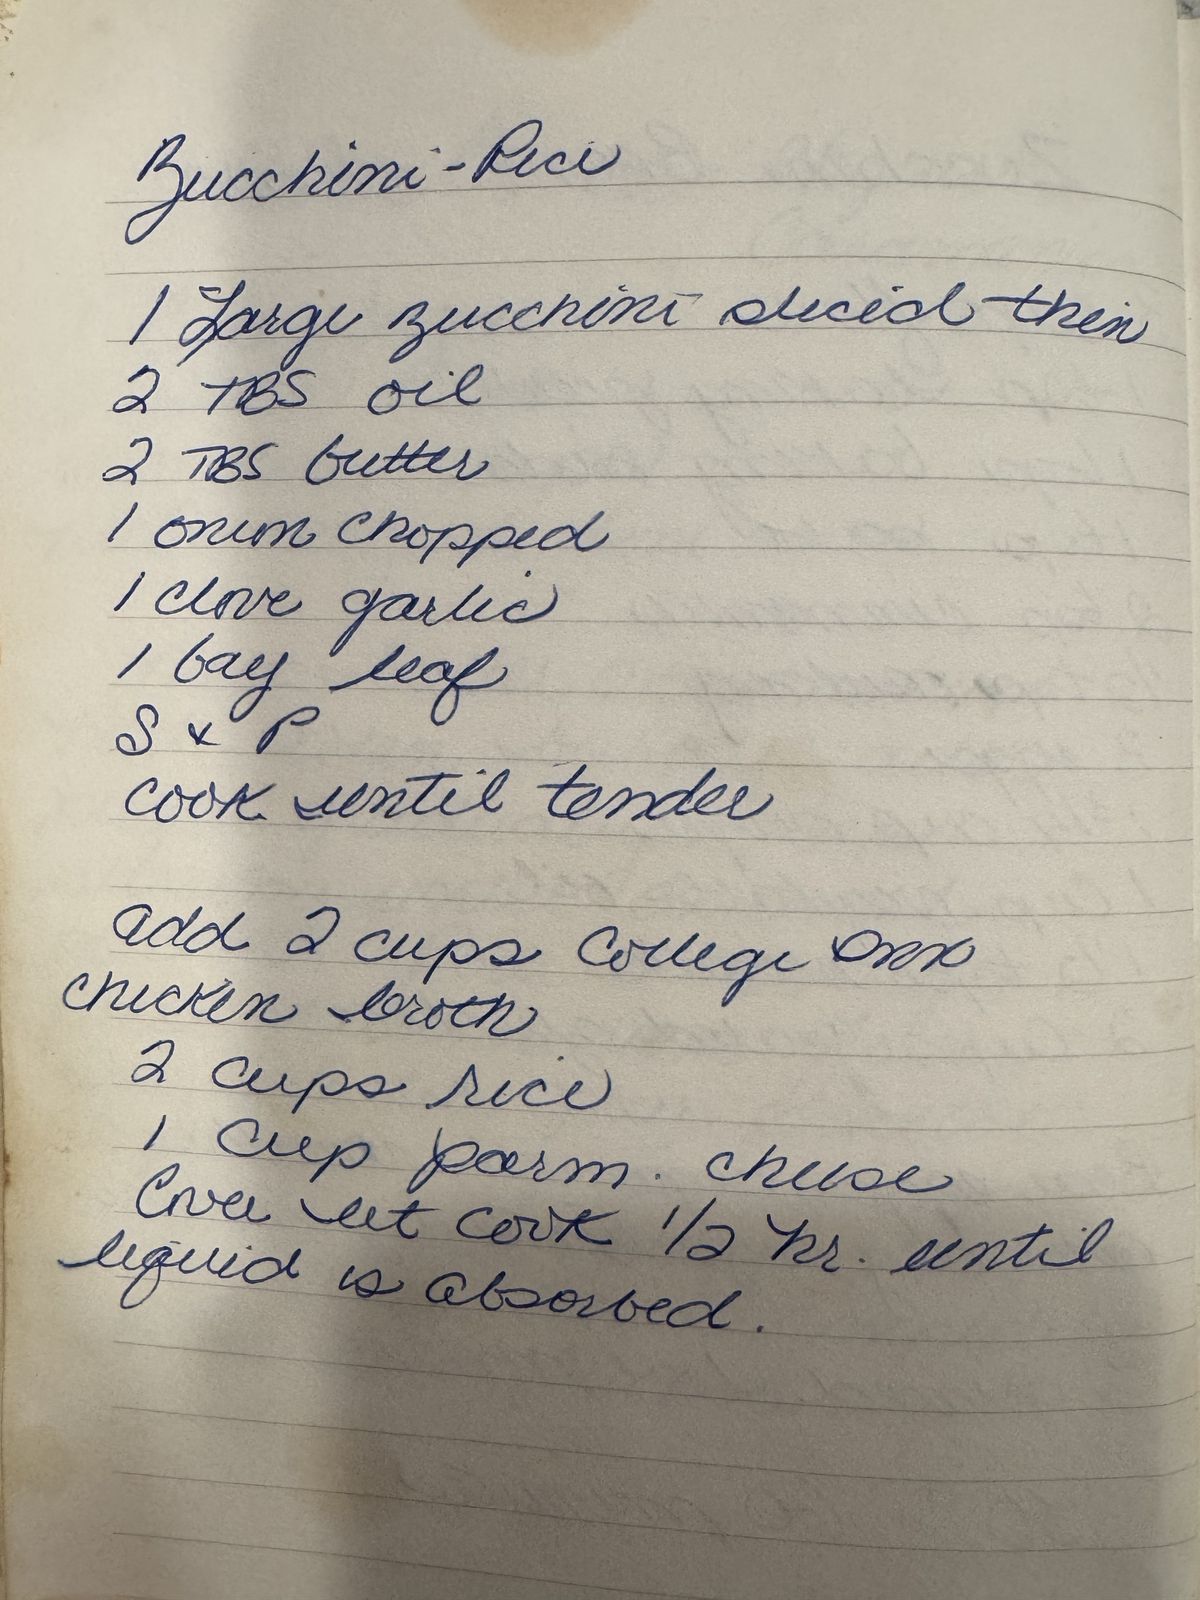 Zucchini-Rice
1 Large zucchini sliced thin
2 TBS oil
2 TBS butter
1 onion chopped
1 clove garlic
1 bay leaf
S & P
cook until tender
add 2 cups College Inn
chicken broth
2 cups rice
1 cup parm. cheese
Cover let cook 1/2 hr. until
liquid is absorbed.